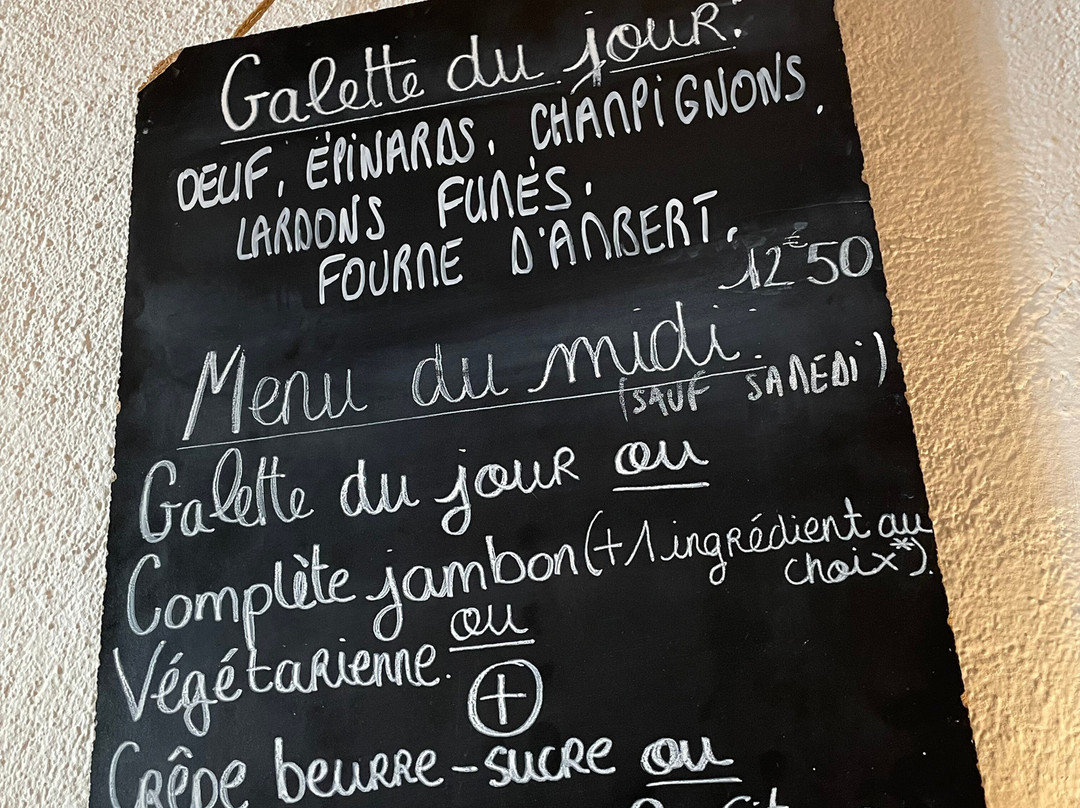 Galette du jour:
OEUF, ÉPINARDS, CHAMPIGNONS,
LARDONS FUMÉS,
FOURME D'AMBERT.
12€50
Menu du midi:
(SAUF SAMEDI)
Galette du jour ou
Complète jambon (+1 ingrédient au
choix*).
ou
Végétarienne.
+
Crêpe beurre-sucre ou